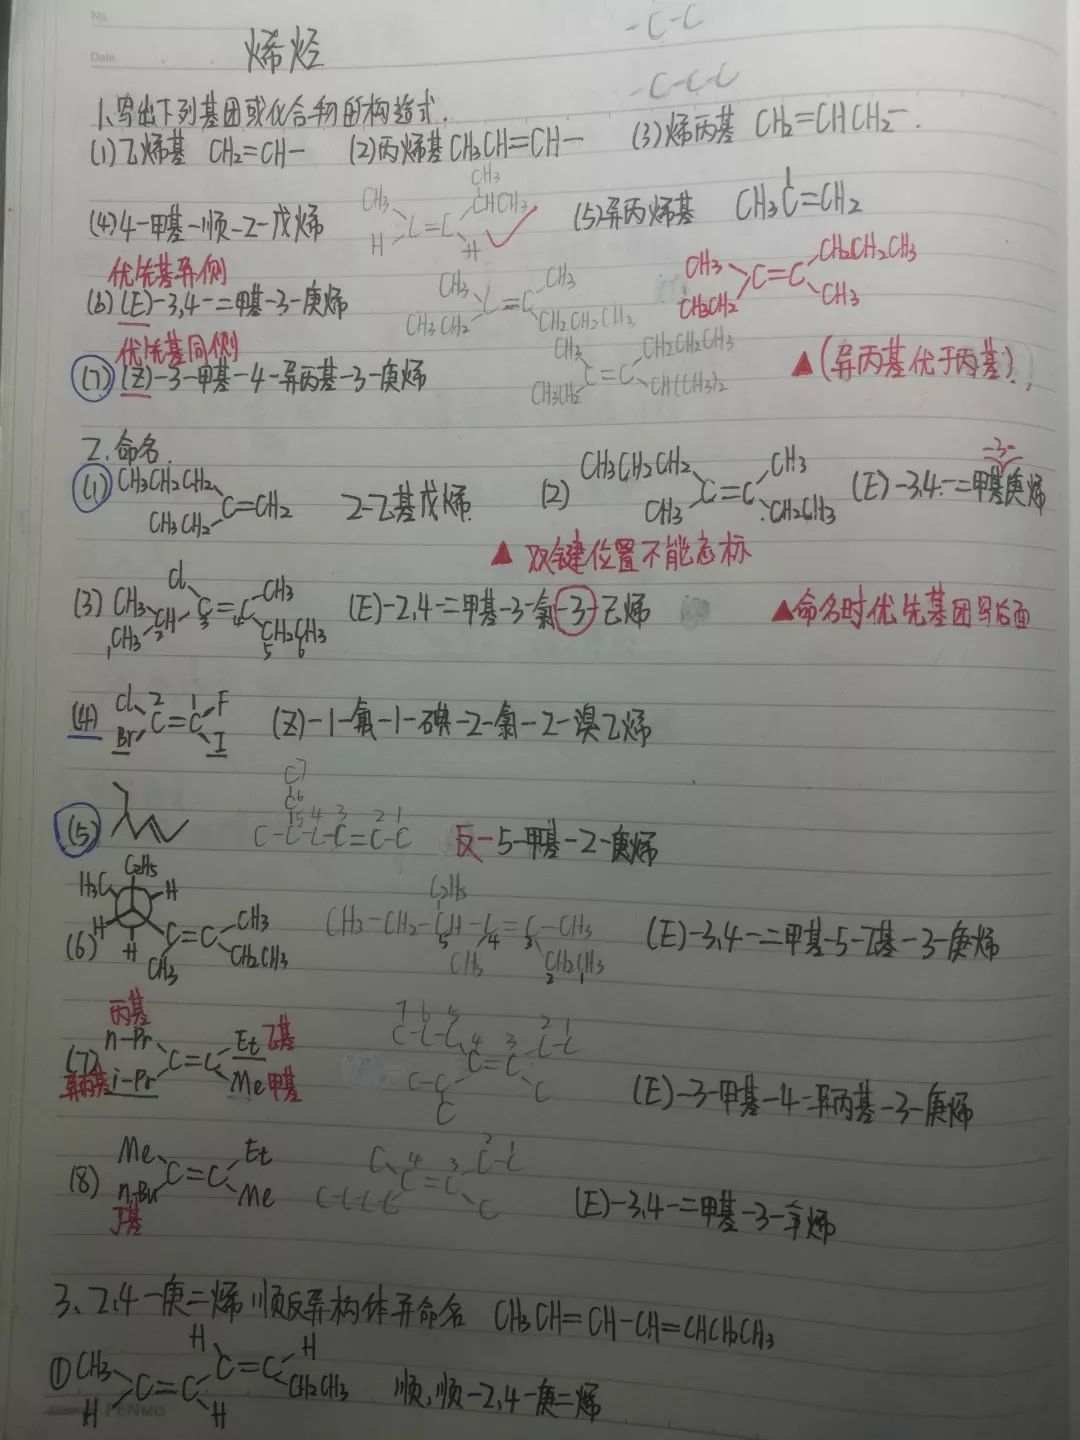 No.
Date
烯烃
-C-C
-C-C-C
1、写出下列基团或化合物的构造式.
(1)乙烯基 CH2=CH- (2)丙烯基 CH3CH=CH- (3)烯丙基 CH2=CHCH2-.
(4)4-甲基-顺-2-戊烯 CH3 H C=C CH3 CHCH3 H (5)异丙烯基 CH3C=CH2
优先基异侧
(6)(E)-3,4-二甲基-3-庚烯 CH3 CH3CH2 C=C CH3 CH2CH2CH3 CH3 CH3CH2 C=C CH2CH2CH3 CH3
优先基同侧
(7)(Z)-3-甲基-4-异丙基-3-庚烯 CH3 CH3CH2 C=C CH2CH2CH3 CH(CH3)2 ▲(异丙基优于丙基).
2.命名.
(1) CH3CH2CH2 CH3CH2 C=CH2 2-乙基戊烯 (2) CH3CH2CH2 CH3 C=C CH3 CH2CH3 (E)-3,4-二甲基庚烯 -3-
▲双键位置不能忘标
(3) CH3 CH3 CH Cl C=C CH3 CH2CH3 1 2 3 4 5 6 (E)-2,4-二甲基-3-氯-3-乙烯 ▲命名时优先基团写后面
(4) Cl Br C=C F I 2 1 (Z)-1-氟-1-碘-2-氯-2-溴乙烯
(5) C7 C6 5 4 3 2 1 C-C-C-C=C-C 反-5-甲基-2-庚烯
(6) H3C C2H5 H H H C=C CH3 CH3 CH2CH3 CH3-CH2-CH-C=C-CH3 C2H5 CH3 CH2CH3 5 4 3 2 1 (E)-3,4-二甲基-5-乙基-3-庚烯
丙基
(7) n-Pr i-Pr C=C Et 乙基 Me 甲基 7 6 5 C-C-C 4 3 C=C 2 1 C-C C-C C C (E)-3-甲基-4-异丙基-3-庚烯
异丙基
(8) Me n-Bu C=C Et Me C C-C-C-C 4 3 C=C 2 1 C-C C (E)-3,4-二甲基-3-辛烯
丁基
3、2,4-庚二烯顺反异构体并命名 CH3CH=CH-CH=CHCH2CH3
① CH3 H C=C H H C=C H CH2CH3 顺,顺-2,4-庚二烯